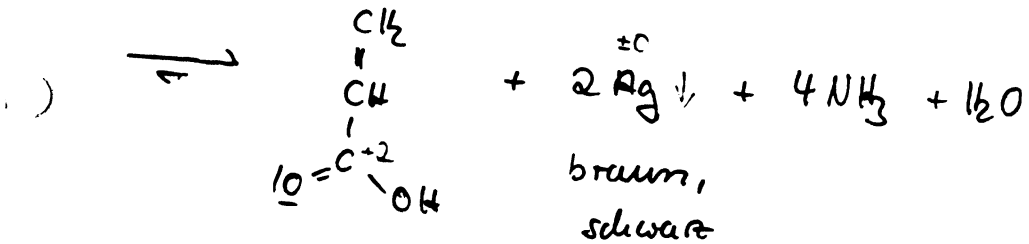 CH₂
||
CH
|
C +2
O = \ OH
) ⇌ + 2 Ag ±0 ↓ + 4 NH₃ + H₂O
braun,
schwarz